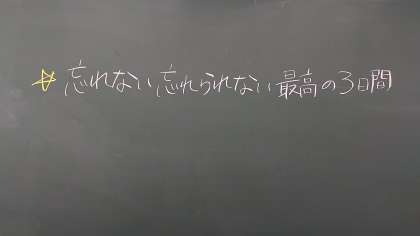 ☆ 忘れない 忘れられない 最高の3日間